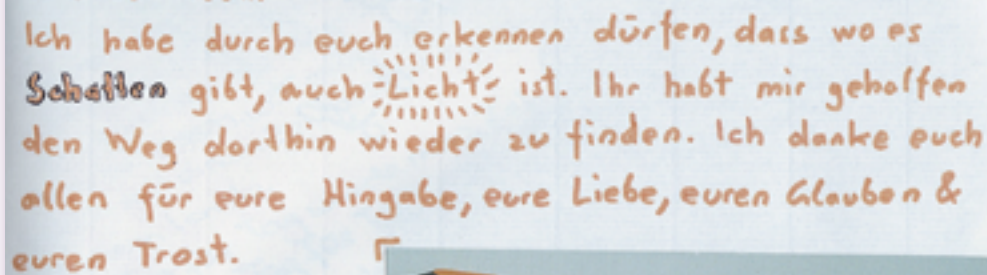 Ich habe durch euch erkennen dürfen, dass wo es
Schatten gibt, auch Licht ist. Ihr habt mir geholfen
den Weg dorthin wieder zu finden. Ich danke euch
allen für eure Hingabe, eure Liebe, euren Glauben &
euren Trost.